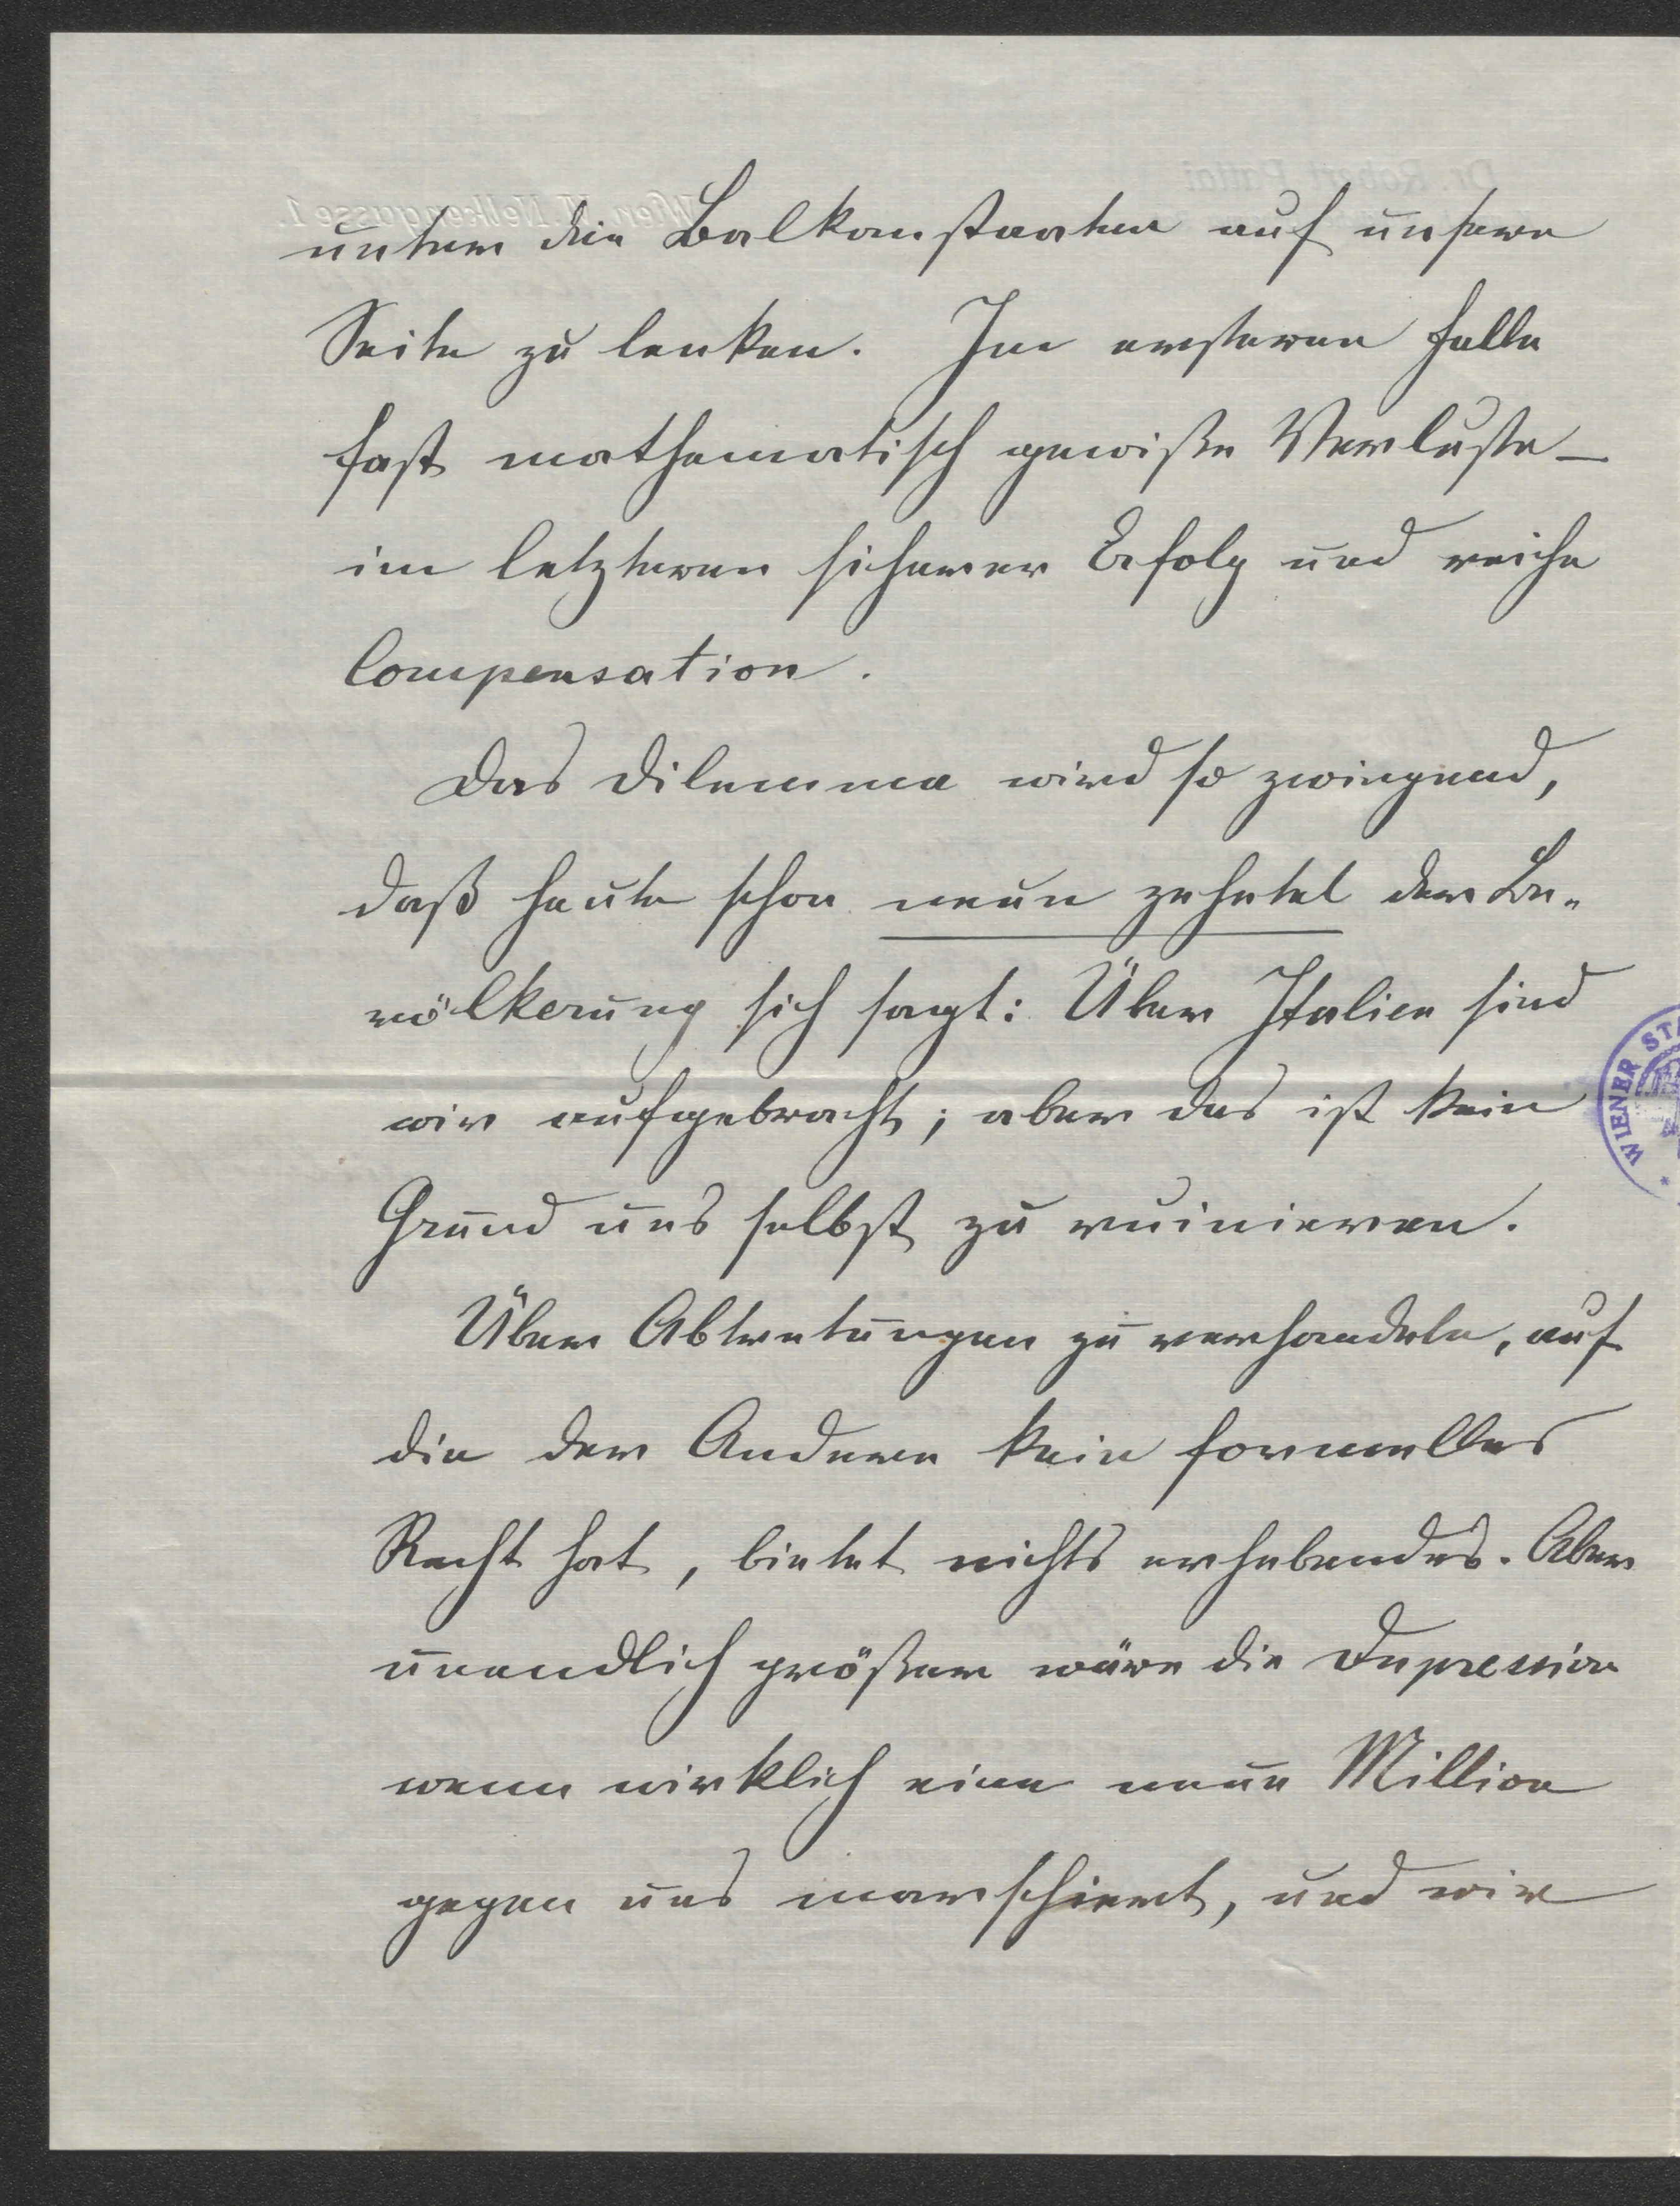 unter die Balkanstaaten auf unsere
Seite zu lenken. Im ersteren Falle
fast mathematisch gewiße Verluste –
im letzteren sicherer Erfolg und reiche
Compensation.
Das Dilemma wird so zwingend,
daß heute schon neun zehntel der Be-
völkerung sich sagt: Über Italien sind
wir aufgebracht; aber das ist kein
Grund uns selbst zu ruinieren.
Über Abtretungen zu verhandeln, auf
die der Andere kein formelles
Recht hat, bietet nichts erhebendes. Aber
unendlich größer wäre die Depression
wenn wirklich eine neue Million
gegen uns marschiert, und wir
Dr. Robert Pattai
Wien VI. Nelkengasse 1
WIENER STA